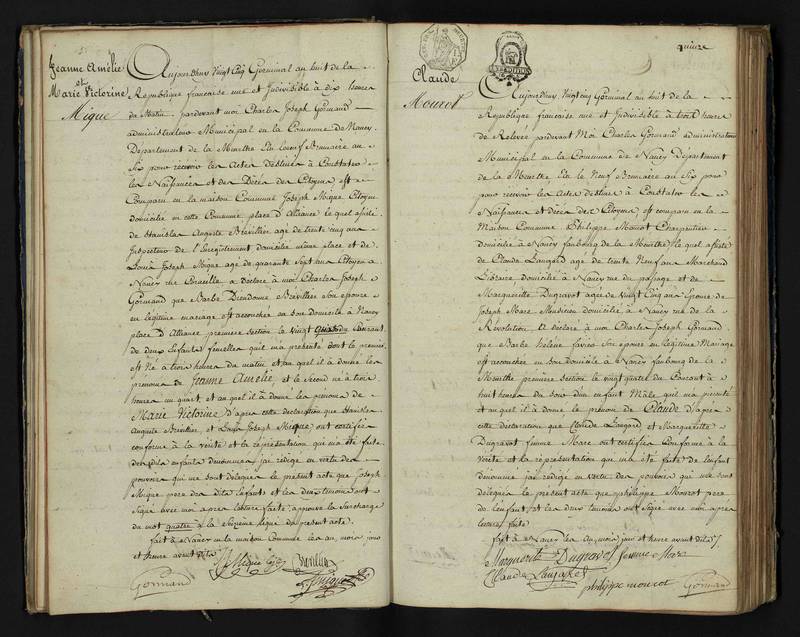 Jeanne Amélie
et
Marie Victorine
Mique
Aujourd'huy vingt Cinq Germinal an huit de la
Republique française une et Indivisible à dix heures
du Matin, pardevant moi Charles Joseph Gormand
administrateur Municipal en la Commune de Nancy
Département de la Meurthe Elu le neuf Brumaire an
Six pour recevoir les Actes destinés à Constater
les Naissances et des Décès des Citoyens, est
Comparu en la maison Commune Joseph Mique Citoyen
domicilié en cette Commune place d'Alliance lequel assisté
de Stanislas Auguste Brévillier agé de trente cinq ans
Inspecteur de l'Enregistrement domicilié même place et de
Louis Joseph Mique agé de quarante Sept ans Citoyen à
Nancy rue a déclaré à moi Charles Joseph
Gormand que Barbe Dieudonné Brévillier Son épouse
en légitime mariage est accouchée en Son domicile à Nancy
place d'Alliance première section le vingt quatre du Courant
de deux Enfants femelles qu'il m'a présenté dont le premier
est Né à trois heures du matin et auquel il à donné les
prénoms de Jeanne Amélie, et le Second né à trois
heures un quart et auquel il à donné les prénoms de
Marie Victorine D'après cette déclaration que Stanislas
Auguste Brévillier et Louis Joseph Mique ont certifiée
conforme à la vérité et la représentation qui m'a été faite
des dits enfants dénommés j'ai rédigé en vertu des
pouvoirs qui me sont délégués le présent acte que Joseph
Mique père des dits Enfants et les deux témoins ont
Signé avec moi après lecture faite, approuvé la Surcharge
du mot quatre à la ligne du présent acte.
fait à Nancy en la maison Commune les an, mois jour
et heure avant dits
Mique
Brévillier
Mique
Gormand
quinze
Claude
Mourot
Aujourd'huy vingt Cinq Germinal an huit de la
République française une et Indivisible à trois heures
de Relevée pardevant Moi Charles Gormand administrateur
Municipal en la Commune de Nancy Département
de la Meurthe Elu le Neuf Brumaire an Six pour
pour recevoir les Actes destinés à Constater les
Naissances et décès des Citoyens, est comparu en la
Maison Commune Philippe Mourot Charpentier
domicilié à Nancy faubourg de la Meurthe, lequel assisté
de Claude Langard agé de trente Neuf ans Marchand
Libraire domicilié à Nancy rue du passage et de
Marguerite Dugravot agée de vingt Cinq ans Epouse de
Joseph Marc Musicien domicilié à Nancy rue de la
Révolution à déclaré à moi Charles Joseph Gormand
que Barbe hélène Son épouse en légitime Mariage
est accouchée en Son domicile à Nancy faubourg de la
Meurthe première Section le vingt quatre du Courant à
huit heures du Soir d'un enfant Mâle qu'il m'a présenté
et auquel il à donné le prénom de Claude d'après
cette déclaration que Claude Langard et Marguerite
Dugravot femme Marc ont certifiée Conforme à la
vérité et la représentation qui m'a été faite de l'enfant
dénommé j'ai rédigé en vertu des pouvoirs qui me sont
délégués le présent acte que philippe Mourot père
de l'enfant, et les deux témoins ont Signé avec moi après
lecture faite
fait à Nancy les an, mois jour et heure avant dits
Marguerite Dugravot femme Marc
Claude
philippe mourot
Gormand